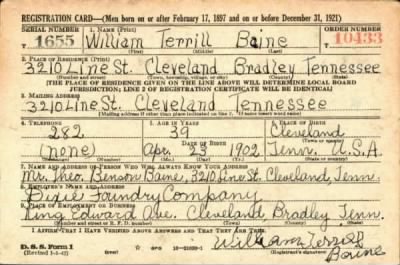 REGISTRATION CARD—(Men born on or after February 17, 1897 and on or before December 31, 1921)
SERIAL NUMBER 1. NAME (Print) ORDER NUMBER
T 1655 William Terrill Baine T 10433
(First) (Middle) (Last)
2. PLACE OF RESIDENCE (Print)
3210 Line St. Cleveland Bradley Tennessee
(Number and street) (Town, township, village, or city) (County) (State)
[THE PLACE OF RESIDENCE GIVEN ON THE LINE ABOVE WILL DETERMINE LOCAL BOARD
JURISDICTION; LINE 2 OF REGISTRATION CERTIFICATE WILL BE IDENTICAL]
3. MAILING ADDRESS
3210 Line St. Cleveland Tennessee
(Mailing address if other than place indicated on line 2. If same insert word same)
4. TELEPHONE 5. AGE IN YEARS 6. PLACE OF BIRTH
282 39 Cleveland
(Town or county)
(none) Apr. 23 1902 Tenn. U.S.A
7. NAME AND ADDRESS OF PERSON WHO WILL ALWAYS KNOW YOUR ADDRESS
Mr. Theo. Benson Baine, 3210 Line St. Cleveland, Tenn.
8. EMPLOYER'S NAME AND ADDRESS
Dixie Foundry Company
9. PLACE OF EMPLOYMENT OR BUSINESS
King Edward Ave. Cleveland, Bradley Tenn.
(Number and street or R. F. D. number) (Town) (County) (State)
I AFFIRM THAT I HAVE VERIFIED ABOVE ANSWERS AND THAT THEY ARE TRUE.
D. S. S. Form 1
(Revised 1-1-42) William Terrill
Baine